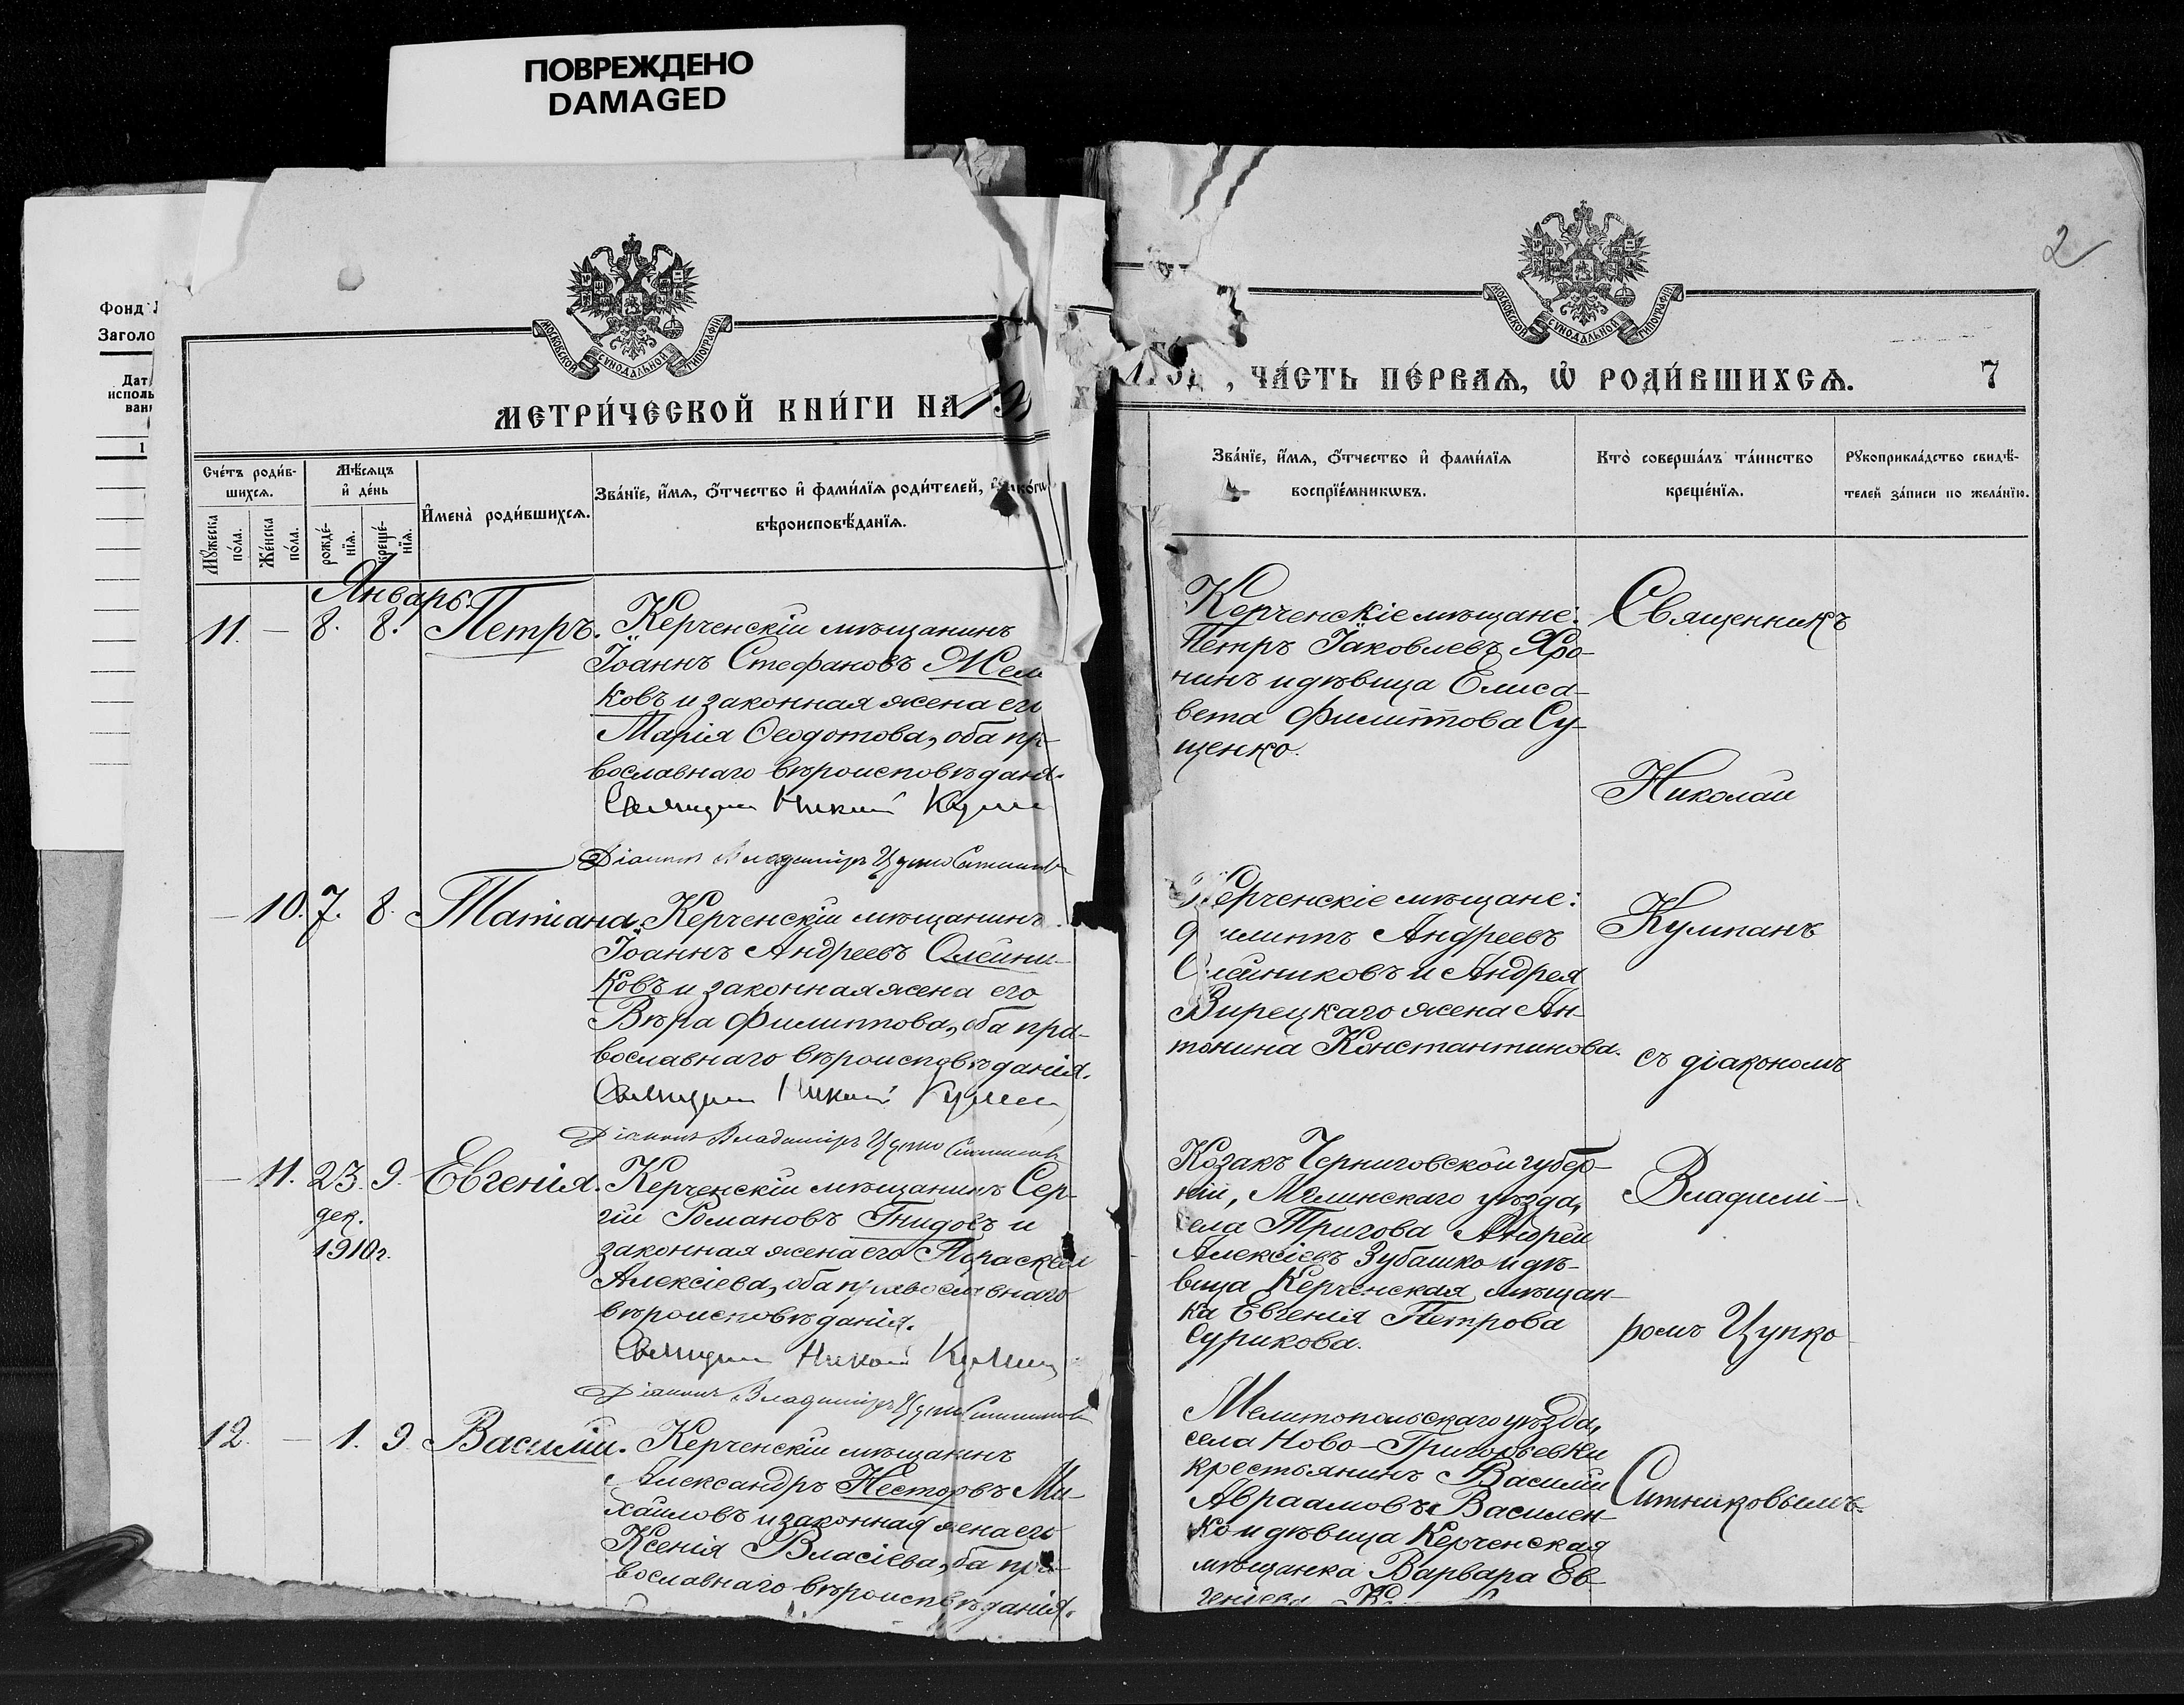 ПОВРЕЖДЕНО
DAMAGED
Фонд
Заголо
Дат
исполь
ван
1
МОСКОВСКОЙ СѴНОДАЛЬНОЙ ТИПОГРАФІИ
МЕТРИ́ЧЕСКОЙ КНИ́ГИ НА 19
Сче́тъ роди́в-
шихсѧ.
Мꙋ́жеска
по́ла.
Же́нска
по́ла.
Мѣ́сѧцъ
и҆ де́нь
рожде́-
нїѧ.
креще́-
нїѧ.
И҆мена̀ роди́вшихсѧ.
Зва́нїе, и҆́мѧ, ѻ҆́тчество и҆ фами́лїѧ роди́телей,
вѣроисповѣ́данїѧ.
Январь.
11. — 8. 8. Петръ. Керченскій мѣщанинъ
Іоаннъ Стефановъ
ковъ и законная жена его
Марія Ѳеодотова, оба пр
вославнаго вѣроисповѣдан
Священн Никол
Діаконъ Владиміръ Цупко Ситников
— 10. 7. 8. Татіана. Керченскій мѣщанинъ
Іоаннъ Андреевъ Олейни-
ковъ и законная жена его
Вѣра Филиппова, оба пра-
вославнаго вѣроисповѣданія.
Священн Никол
Діаконъ Владиміръ Цупко Ситников
— 11. 23. 9. Евгенія. Керченскій мѣщанинъ Сер-
дек.
1910 г.
гій Романовъ Гнидовъ и
законная жена его Параскева
Алексіева, оба православнаго
вѣроисповѣданія.
Священн Никол
Діаконъ Владиміръ Цупко Ситников
12. — 1. 9. Василій. Керченскій мѣщанинъ
Александръ Несторовъ Ми-
хайловъ и законная жена его
Ксенія Власіева, оба пра-
вославнаго вѣроисповѣданія.
2
МОСКОВСКОЙ СѴНОДАЛЬНОЙ ТИПОГРАФІИ
, ЧА́СТЬ ПЕ́РВАѦ, Ѡ҆ РОДИ́ВШИХСѦ. 7
Зва́нїе, и҆́мѧ, ѻ҆́тчество и҆ фами́лїѧ
воспрїе́мникѡвъ.
Кто̀ соверша́лъ та́инство
креще́нїѧ.
Рꙋкоприкла́дство свидѣ́-
телей за́писи по жела́нїю.
Керченскіе мѣщане:
Петръ Іаковлевъ Хро-
нинъ и дѣвица Елиса-
вета Филиппова Су-
щенко.
Керченскіе мѣщане:
илиппъ Андреевъ
Олейниковъ и Андрея
Вирецкаго жена Ан-
тонина Константинова.
Козакъ Черниговской губер-
ніи, Мглинскаго уѣзда,
села Тригова Андрей
Алексіевъ Зубашко и дѣ-
вица Керченская мѣщан-
ка Евгенія Петрова
Сурикова.
Мелитопольскаго уѣзда,
села Ново-Григорьевки
крестьянинъ Василій
Авраамовъ Василен-
ко и дѣвица Керченская
мѣщанка Варвара Ев-
геніева
Священникъ
Николай
Кулпанъ
съ діакономъ
Владимі-
ромъ Цупко
Ситниковымъ.